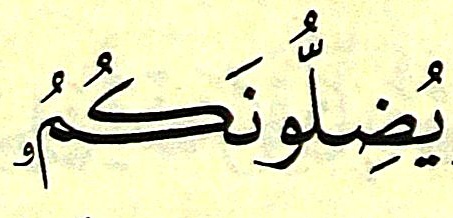 يُضِلُّونَكُمُۥ